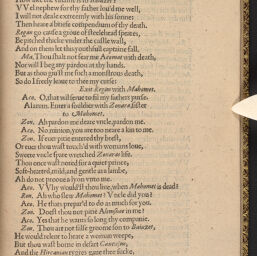 VVel nephew for thy father lou'd me well,
I will not deale extreemly with his sonne:
Then heare a briefe compendium of thy death.
Regan go cause a groue of steelehead speares,
Be pitched thicke vnder the castle wall,
And on them let this youthfull captaine fall.
Ma. Thou shalt not fear me Acomat with death,
Nor will I beg my pardon at thy hands.
But as thou giu'st me such a monstrous death,
So do I freely leaue to thee my curse
Exit Regan with Mahomet.
Aco. O, that wil serue to fil my fathers purse.
Alarum. Enter a souldier with Zonara sister
to Mahomet.
Zon. Ah pardon me deare vncle, pardon me.
Aco. No minion, you are too neare a kin to me.
Zon. If euer pitie entered thy brest,
Or euer thou wast touch'd with womans loue,
Sweete vncle spare wretched Zonaras life.
Thou once wast noted for a quiet prince,
Soft-hearted, mild, and gentle as a lambe,
Ah do not prooue a lyon vnto me.
Aco. VVhy would'st thou liue, when Mahomet is dead?
Zon. Ah who slew Mahomet? Vncle did you?
Aco. He thats prepar'd to do as much for you.
Zon. Doest thou not pitie Alemshae in me?
Aco. Yes that he wants so long thy companie.
Zon. Thou art not false groome son to Baiazet,
He would relent to heare a woman weepe,
But thou wast borne in desart Caucasus,
And the Hircanian tygres gaue thee sucke,